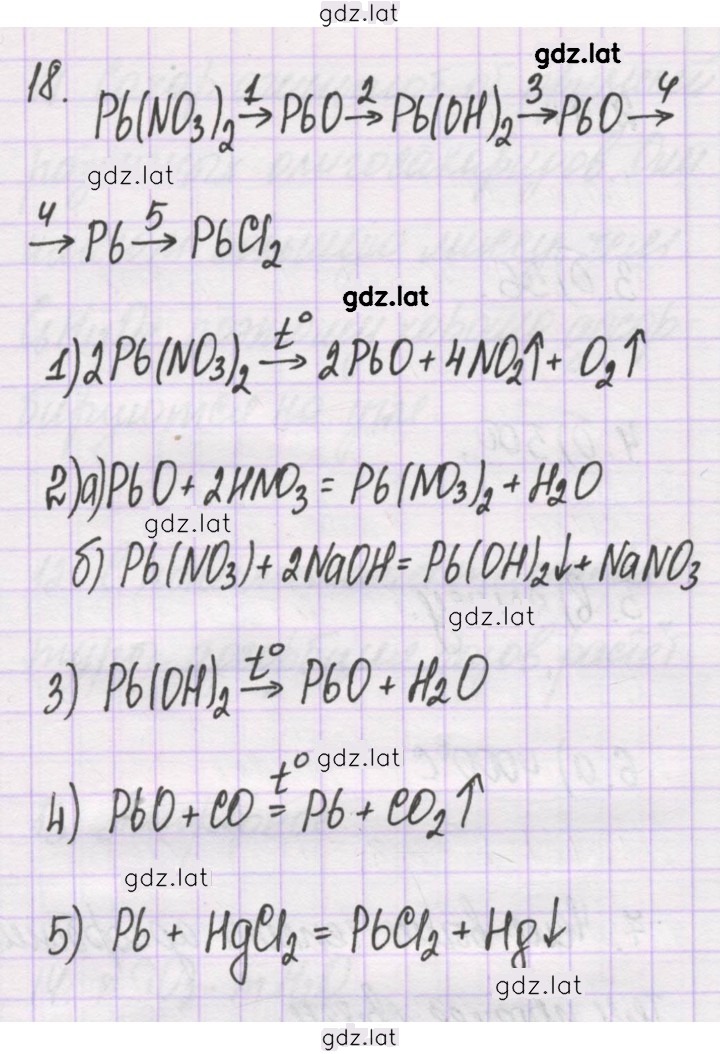 gdz.lat
gdz.lat
18. Pb(NO₃)₂ →¹ PbO →² Pb(OH)₂ →³ PbO →⁴
gdz.lat
→⁴ Pb →⁵ PbCl₂
gdz.lat
1) 2Pb(NO₃)₂ →t° 2PbO + 4NO₂↑ + O₂↑
2) а) PbO + 2HNO₃ = Pb(NO₃)₂ + H₂O
gdz.lat
б) Pb(NO₃) + 2NaOH = Pb(OH)₂↓ + NaNO₃
gdz.lat
3) Pb(OH)₂ →t° PbO + H₂O
gdz.lat
4) PbO + CO =t° Pb + CO₂↑
gdz.lat
5) Pb + HgCl₂ = PbCl₂ + Hg↓
gdz.lat
gdz.lat